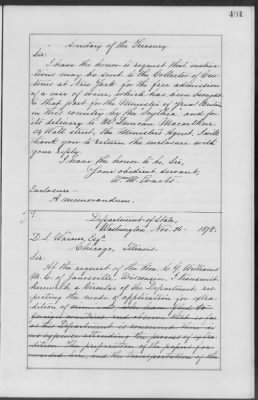 401
Secretary of the Treasury
Sir:
I have the honor to request that instruc-
tions may be sent to the Collector of Cus-
toms at New York for the free admission
of a case of wine, which has been brought
to that port for the Minister of Great Britain
in this country by the Scythia and for
its delivery to Mr. Duncan Macarthur
Wall street, the Minister's Agent. I will
thank you to return the enclosure with
your reply.
I have the honor to be Sir,
Your obedient servant,
Wm. M. Evarts.
Enclosure
A memorandum.
Department of State,
Washington, Nov. 26 1878.
D. S. Warner, Esq.
Chicago, Illinois.
Sir:
At the request of the Hon. C. G. Williams
M.C. of Janesville, Wisconsin, I transmit
herewith a Circular of the Department, res-
pecting the mode of application for extra-
dition of criminals who have fled to
foreign countries and observe that so far
as this Department is concerned there is
no expense attending the process of extra-
dition. The preparation of the papers for-
warded are, and the transportation of the